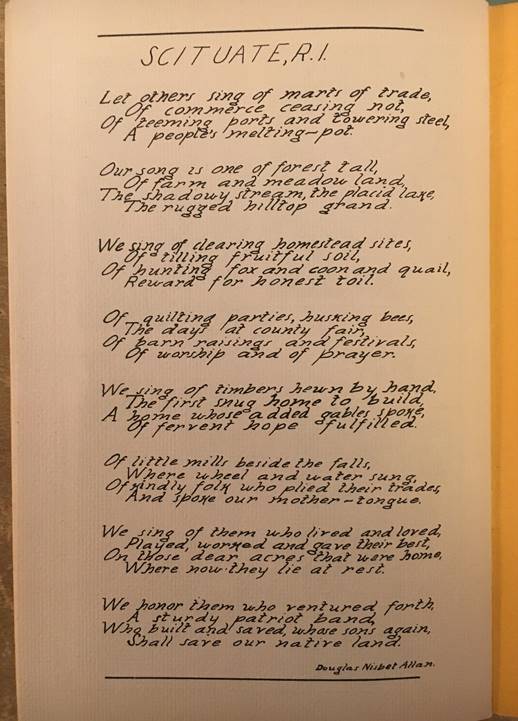 SCITUATE, R.I.
Let others sing of marts of trade,
Of commerce ceasing not,
Of teeming ports and towering steel,
A people's melting-pot.
Our song is one of forest tall,
Of farm and meadow land,
The shadowy stream, the placid lake,
The rugged hilltop grand.
We sing of clearing homestead sites,
Of tilling fruitful soil,
Of hunting fox and coon and quail,
Reward for honest toil.
Of quilting parties, husking bees,
The days at county fair,
Of barn raisings and festivals,
Of worship and of prayer.
We sing of timbers hewn by hand,
The first snug home to build,
A home whose added gables spoke,
Of fervent hope fulfilled.
Of little mills beside the falls,
Where wheel and water sung,
Of kindly folk who plied their trades,
And spoke our mother-tongue.
We sing of them who lived and loved,
Played, worked and gave their best,
On those dear acres that were home,
Where now they lie at rest.
We honor them who ventured forth,
A sturdy patriot band,
Who built and saved, whose sons again,
Shall save our native land.
Douglas Nisbet Allan.